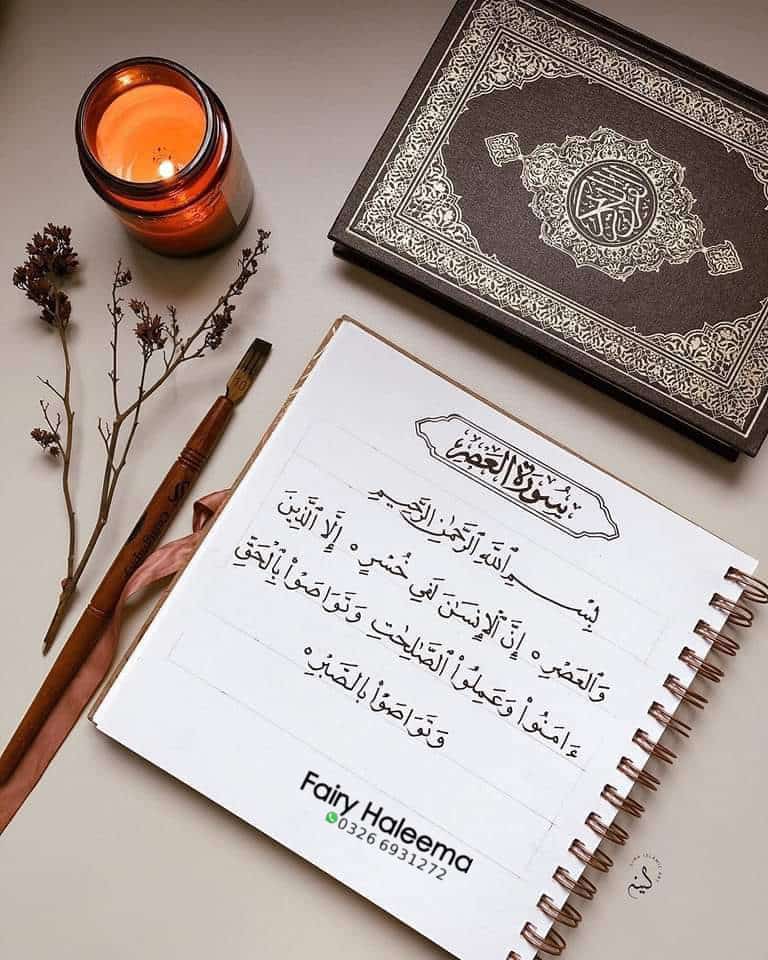 سُورَةُ العَصْرِ
بِسْمِ ٱللَّهِ ٱلرَّحْمَٰنِ ٱلرَّحِيمِ
وَٱلْعَصْرِ ٥ إِنَّ ٱلْإِنسَٰنَ لَفِي خُسْرٍ ٥ إِلَّا ٱلَّذِينَ
ءَامَنُواْ وَعَمِلُواْ ٱلصَّٰلِحَٰتِ وَتَوَاصَوْاْ بِٱلْحَقِّ
وَتَوَاصَوْاْ بِالصَّبْرِ ٥
Fairy Haleema
0326 6931272